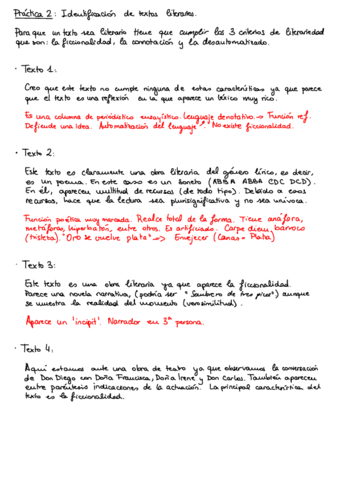 Práctica 2: Identificación de textos literales.
Para que un texto sea literario tiene que cumplir los 3 criterios de literariedad
que son: la ficcionalidad, la connotación y la desautomatizado.
· Texto 1:
Creo que este texto no cumple ninguna de estas características ya que parece
que el texto es una reflexión en la que aparece un léxico muy rico.
Es una columna de periodístico ensayístico. Lenguaje denotativo -> Función ref.
Defiende una idea. Automatización del lenguaje. No existe ficcionalidad.
· Texto 2:
Este texto es claramente una obra literaria del género lírico, es decir,
es un poema. En este caso es un soneto (ABBA ABBA CDC DCD).
En él, aparecen multitud de recursos (de todo tipo). Debido a esos
recursos, hace que la lectura sea plurisignificativa y no sea unívoca.
Función poética muy marcada. Realce total de la forma. Tiene anáfora,
metáforas, hipérbaton, entre otros. Es artificiado. Carpe diem barroco
(tristeza). "Oro se vuelve plata" -> Envejecer (Canas = Plata)
· Texto 3:
Este texto es una obra literaria ya que aparece la ficcionalidad.
Parece una novela narrativa, (podría ser "Sombrero de tres picos") aunque
se muestra la realidad del momento (verosimilitud).
Aparece un 'incipit'. Narrador en 3ª persona.
· Texto 4:
Aquí estamos ante una obra de teatro ya que observamos la conversación
de Don Diego con Doña Francisca, Doña Irene y Don Carlos. También aparecen
entre paréntesis indicaciones de la actuación. La principal característica del
texto es la ficcionalidad.